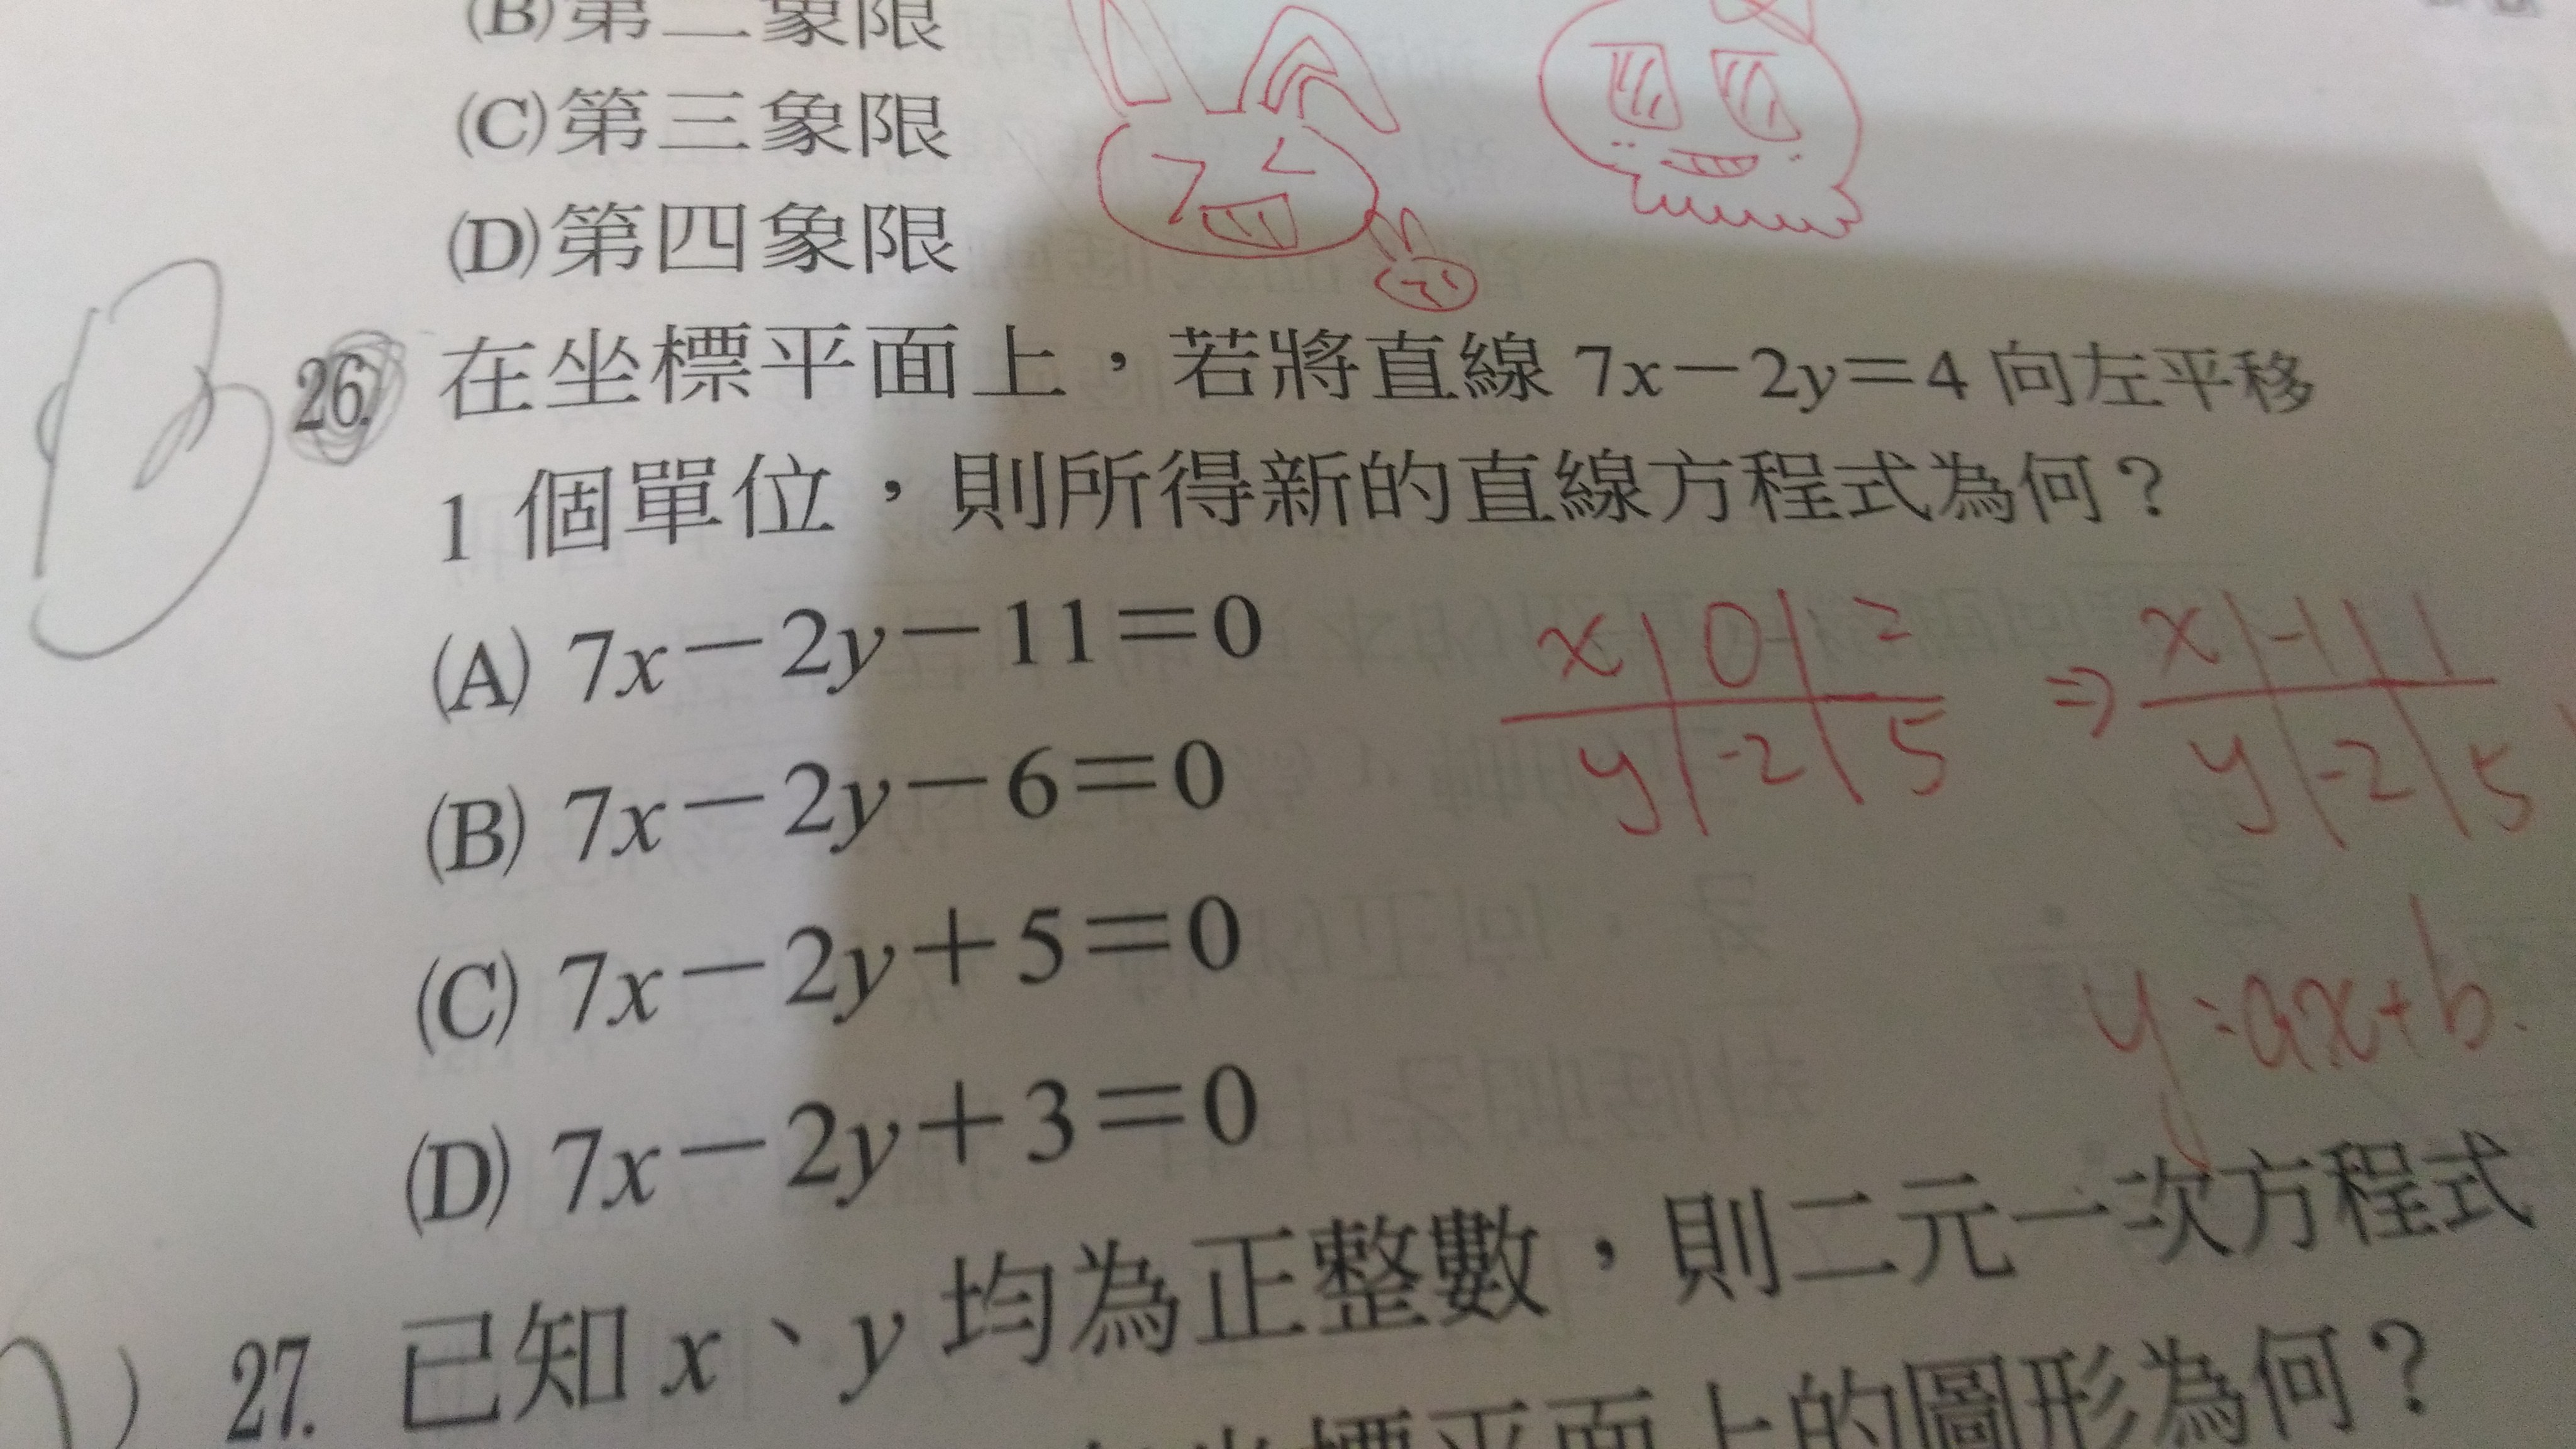 (B)第二象限
(C)第三象限
(D)第四象限
26. 在坐標平面上，若將直線 7x－2y＝4 向左平移
1 個單位，則所得新的直線方程式為何？
(A) 7x－2y－11＝0
(B) 7x－2y－6＝0
(C) 7x－2y＋5＝0
(D) 7x－2y＋3＝0
x | 0 | 2
y | -2 | 5
⇒
x | -1 | 1
y | -2 | 5
y=ax+b.
27. 已知 x、y 均為正整數，則二元一次方程式
坐標平面上的圖形為何？